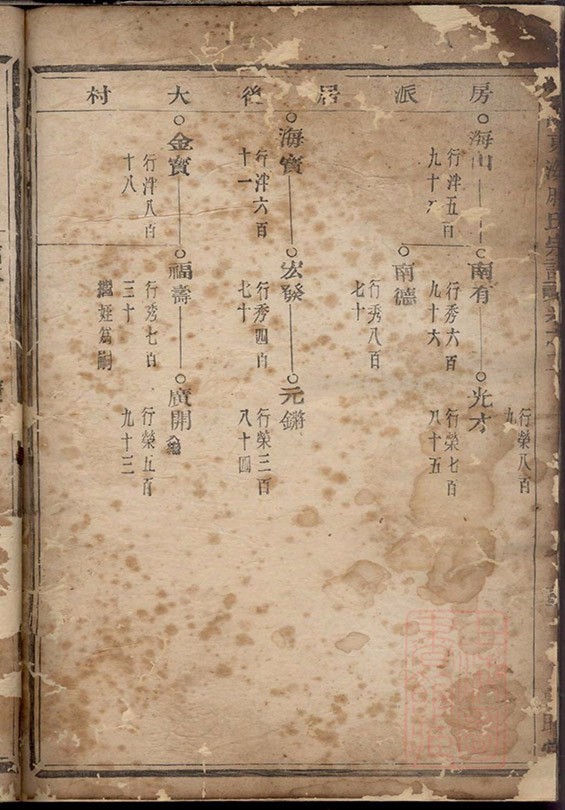 房派居後大村
行榮八百
九
海
行泮五百
九十
南有
行秀六百
九十六
光才
行榮七百
八十五
南德
行秀八百
七十
海寳
行泮六百
十一
宏發
行秀四百
七十
元鏘
行榮三百
八十四
金寳
行泮八百
十八
福壽
行秀七百
三十
繼姪為嗣
廣開
行榮五百
九十三
氏宗譜